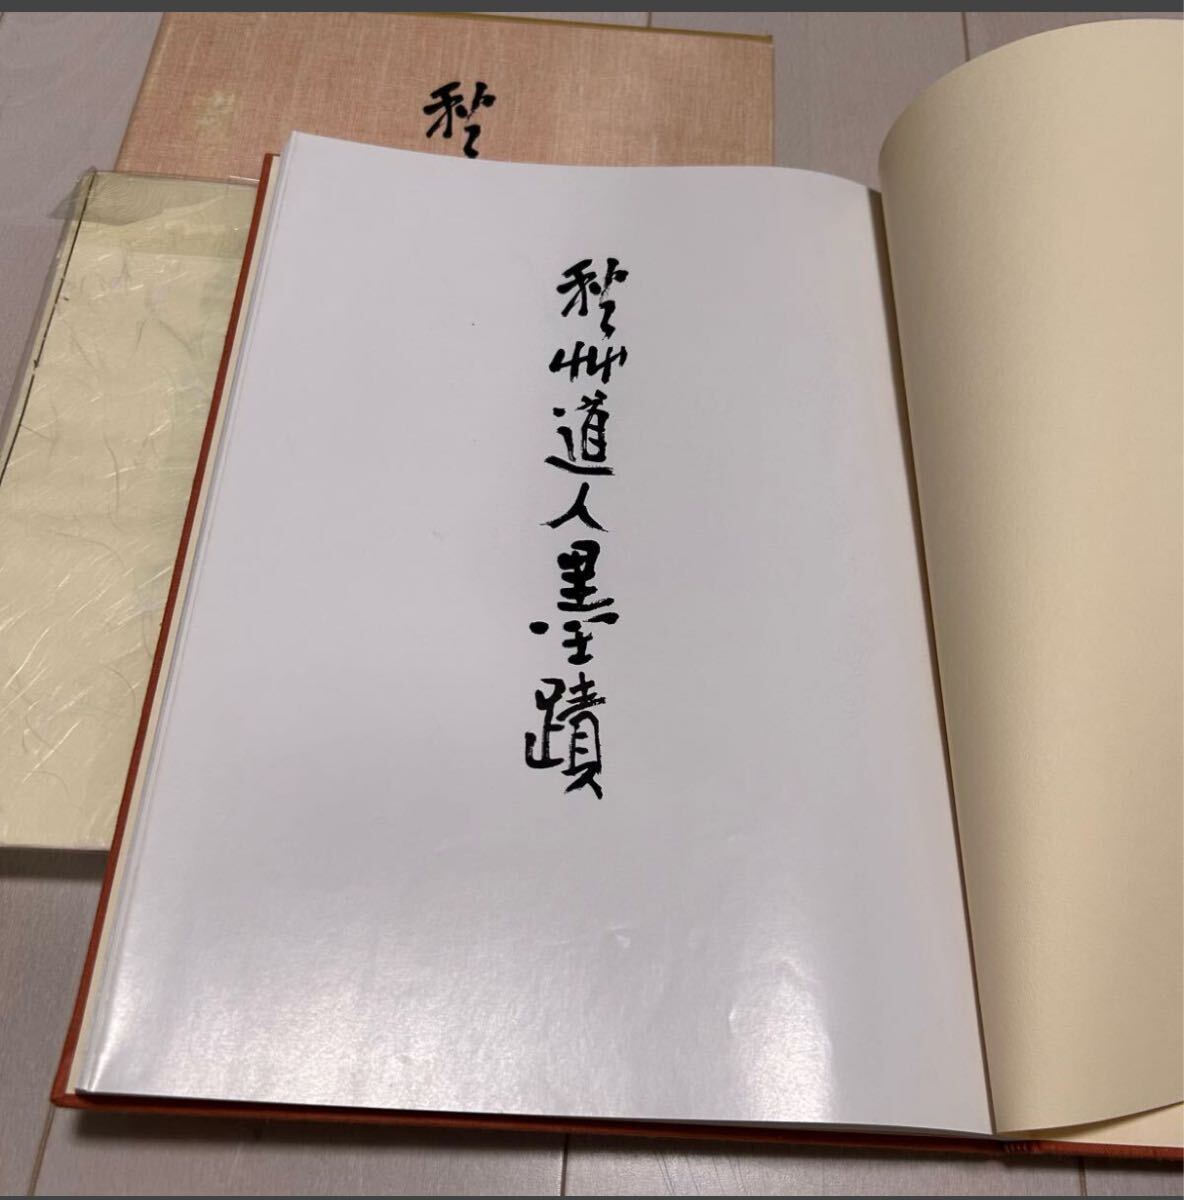 秋
秋艸道人墨蹟